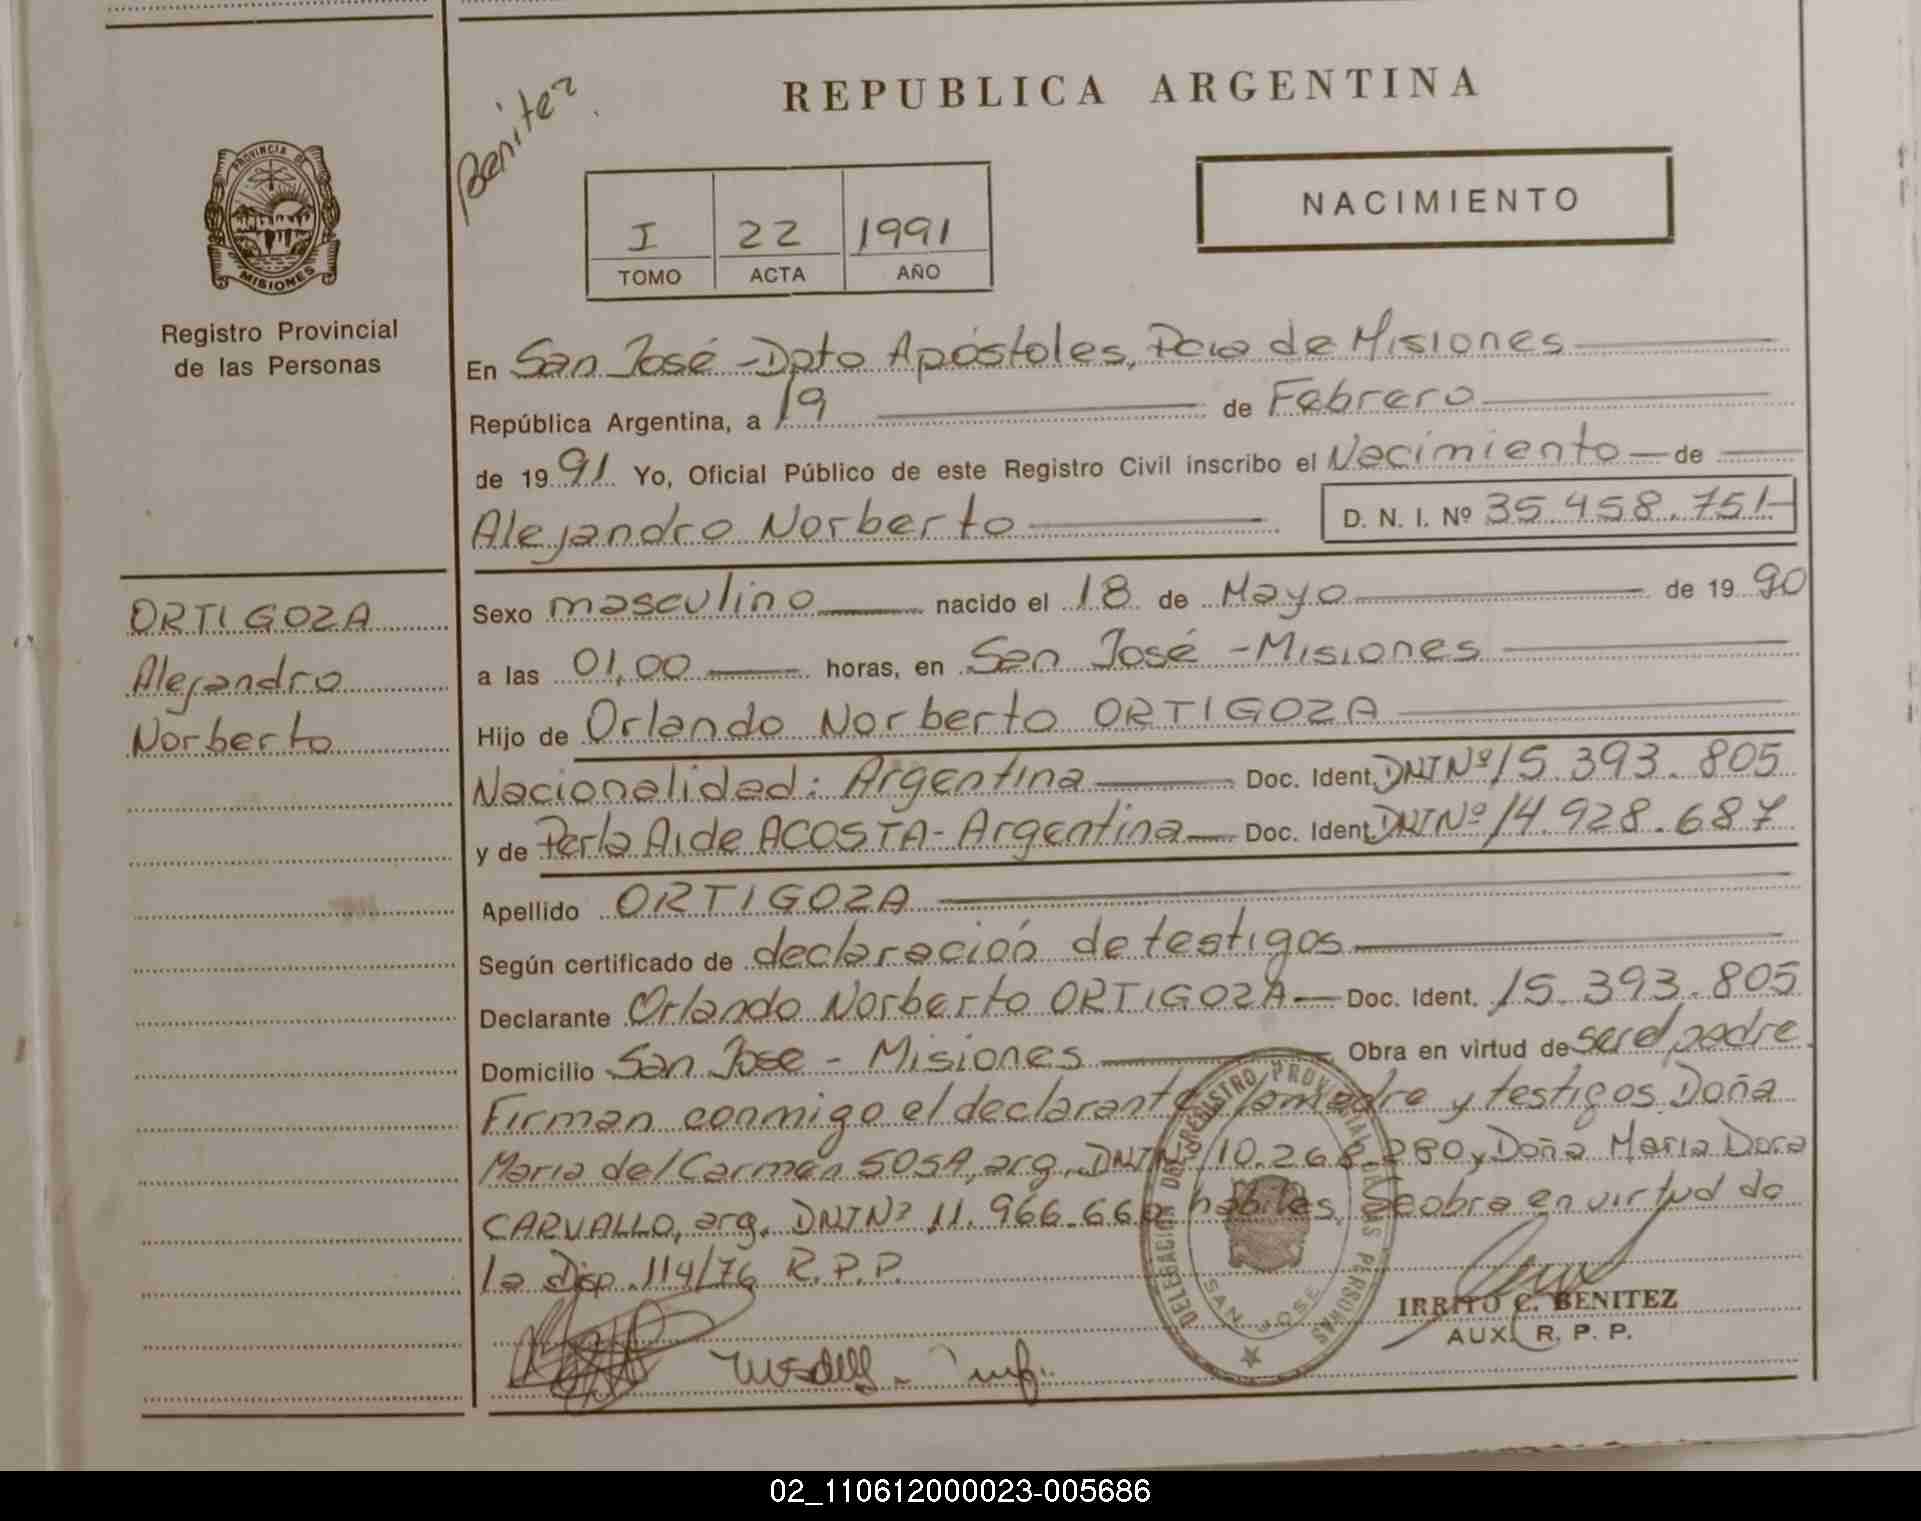 REPUBLICA ARGENTINA
Benitez
PROVINCIA DE
MISIONES
Registro Provincial
de las Personas
I 22 1991
TOMO ACTA AÑO
NACIMIENTO
En San José - Dpto Apóstoles, Pcia de Misiones
República Argentina, a 19 de Febrero
de 1991 Yo, Oficial Público de este Registro Civil inscribo el Nacimiento de
Alejandro Norberto D. N. I. Nº 35.458.751
ORTIGOZA
Alejandro
Norberto
Sexo masculino nacido el 18 de Mayo de 1990
a las 01,00 horas, en San José - Misiones
Hijo de Orlando Norberto ORTIGOZA
Nacionalidad: Argentina Doc. Ident. DNI Nº 15.393.805
y de Perla Aide ACOSTA - Argentina Doc. Ident. DNI Nº 14.928.687
Apellido ORTIGOZA
Según certificado de declaración de testigos
Declarante Orlando Norberto ORTIGOZA Doc. Ident. 15.393.805
Domicilio San Jose - Misiones Obra en virtud de ser el padre.
Firman conmigo el declarante, la madre y testigos Doña
Maria del Carmen SOSA, arg. DNI Nº 10.268.280 y Doña Maria Dora
CARVALLO, arg. DNI Nº 11.966.66 habiles, se obra en virtud de
la Disp. 114/76 R.P.P.
DELEGACION DEL REGISTRO PROVINCIAL DE LAS PERSONAS
SAN JOSE
IRRITO C. BENITEZ
AUX. R. P. P.
02_110612000023-005686